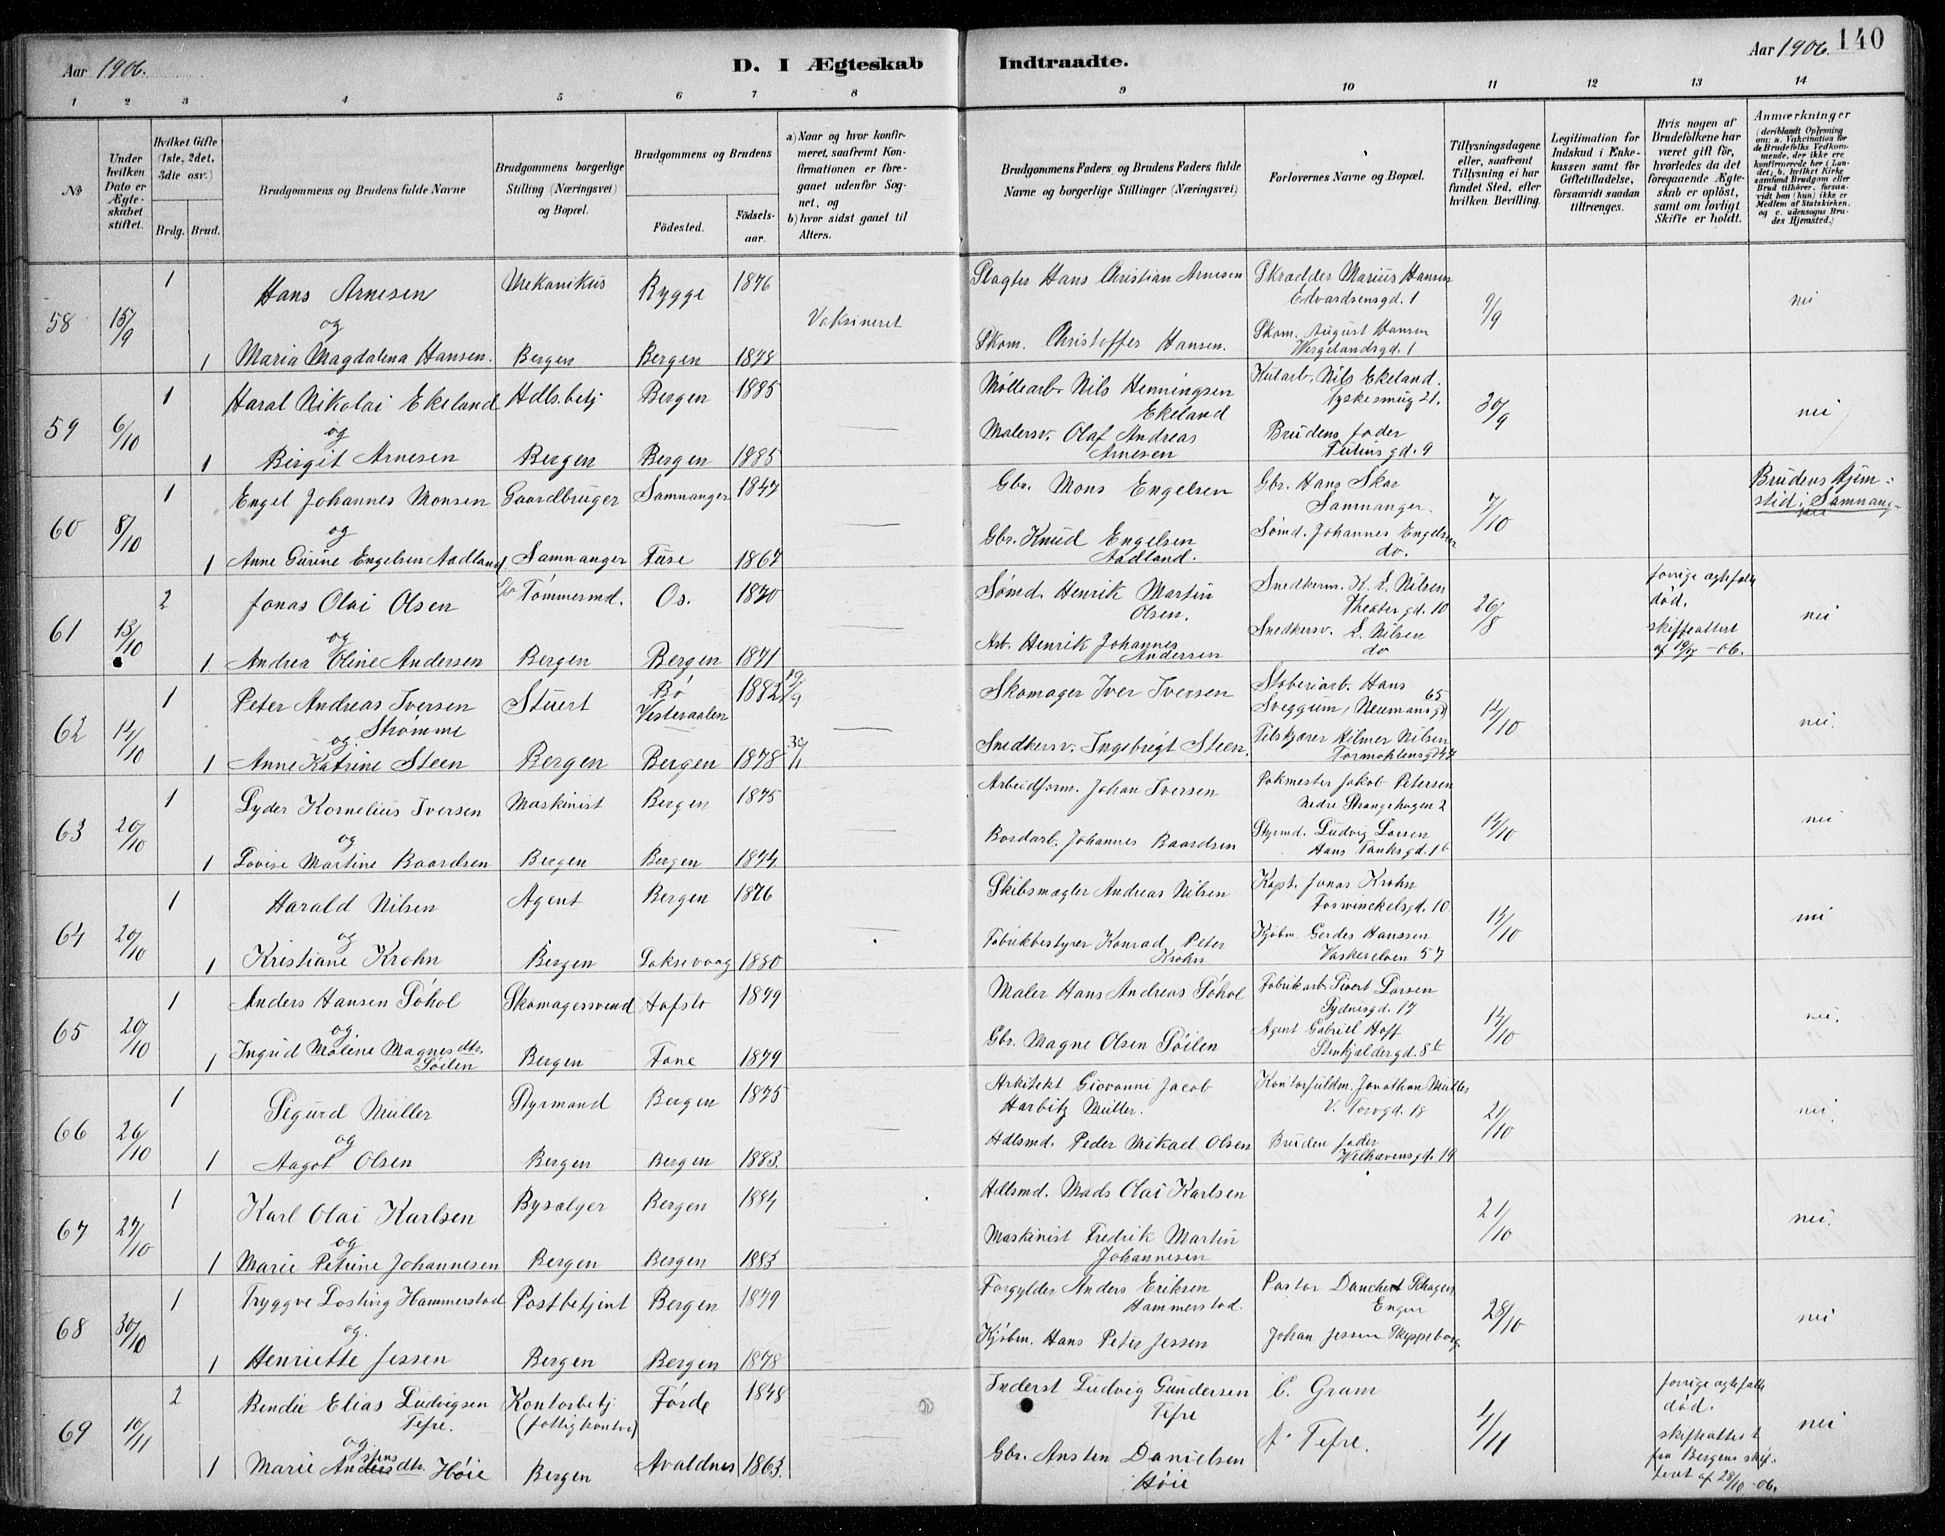 Aar 1906.
D. I Ægteskab
Indtraadte.
Aar 1906.
140
1 2 3 4 5 6 7 8 9 10 11 12 13 14
No
Under hvilken Dato er Ægteskabet stiftet.
Hvilket Gifte (1ste, 2det, 3die osv.)
Brdg. Brud.
Brudgommens og Brudens fulde Navne
Brudgommens borgerlige Stilling (Næringsvei) og Bopæl.
Brudgommens og Brudens
Födested.
Födsels-aar.
a) Naar og hvor konfir-
meret, saafremt Kon-
firmationen er fore-
gaaet udenfor Sog-
net, og
b) hvor sidst gaaet til
Alters.
Brudgommens Faders og Brudens Faders fulde
Navne og borgerlige Stillinger (Næringsvei)
Forlovernes Navne og Bopæl.
Tillysningsdagene
eller, saafremt
Tillysning ei har
fundet Sted, efter
hvilken Bevilling.
Legitimation for
Indskud i Enke-
kassen samt for
Giftetilladelse,
forsaavidt saadan
tiltrænges.
Hvis nogen af
Brudefolkene har
været gift för,
hvorledes da det
foregaaende Ægte-
skab er oplöst,
samt om lovligt
Skifte er holdt.
Anmærkninger
(deriblandt Oplysning
om: a. Vakcination for
de Brudefolks Vedkom-
mende, der ikke ere
konfirmerede her i Lan-
det; b. hvilket Kirke
samfund Brudgom eller
Brud tilhörer, forsaa-
vidt han (hun) ikke er
Medlem af Statskirken.
og c. udensogns Bru-
des Hjemsted.)
58 15/9 1 Hans Arnesen Mekanikus Rygge 1876 Slagter Hans Christian Arnesen Skrædder Marius Hansen
Edvardsensgd. 1 9/9 nei
og Vaksineret
1 Maria Magdalena Hansen. Bergen Bergen 1878 Skom. Christoffer Hansen. Skom. August Hansen
Wergelandsgd. 1
59 6/10 1 Haral Nikolai Ekeland Hdls.betj Bergen 1885 Møllearb. Nils Henningsen
Ekeland Kularb. Nils Ekeland.
Tyskesmug 21. 30/9 nei
og
1 Birgit Arnesen Bergen Bergen 1885 Malersv. Olaf Andreas
Arnesen Brudens fader
Tulinsgd. 9
60 8/10 1 Engel Johannes Monsen Gaardbruger Samnanger 1847 Gbr. Mons Engelsen Gbr. Hans Skar
Samnanger. 7/10 Brudens Hjem-
sted: Samnang-
og
1 Anne Gurine Engelsen Aadland. Samnanger Fuse 1867 Gbr. Knud Engelsen
Aadland. Sømd. Johannes Engelsen
do.
61 13/10 2 Jonas Olai Olsen Tømmermd. Os. 1870 Sømd. Henrik Martin
Olsen. Snedkerm. K. L. Nilsen
Theatergd. 10 26/8 forrige ægtefælle
død.
skifteattest
af 19/9 -06. nei
og
1. Andrea Oline Andersen Bergen Bergen 1871 Arb. Henrik Johannes
Andersen Snedkersv. L. Nilsen
do
62 14/10 1 Peter Andreas Iversen
Strømme Stuert Bø
Vesteraalen 1882 19/9 Skomager Iver Iversen Støberiarb. Hans
Sveggum, Neumansgd 65 14/10 nei.
og.
1 Anne Katrine Steen Bergen Bergen 1878 30/11 Snedkersv. Ingebrigt Steen. Filskjærer Hilmer Nilsen
Formoklensgd 47
63 20/10 1 Lyder Kornelius Iversen Maskinist Bergen 1875 Arbeidform. Johan Iversen Pakmester Jakob Petersen
Nedre Strangehagen 2 14/10 nei
og
1 Lovise Martine Baardsen Bergen Bergen 1874 Bordarb. Johannes Baardsen Styrmd. Ludvig Larsen
Hans Tanksgd. 1b
64 20/10 1 Harald Nilsen Agent Bergen 1876 Skibsmægler Andreas Nilsen Kapt. Jonas Krohn
Foswinckelsgd. 10 14/10 nei
og
1 Kristiane Krohn Bergen Laksevaag 1880 Fabrikbestyrer Konrad Peter
Krohn Kjøbm. Gerdes Hanssen
Vaskerelven 57
65 20/10 1 Anders Hansen Søhol Skomagersvend Hafslo 1879 Maler Hans Andreas Søhol Fabrikarb. Sivert Larsen
Sydnesgd. 17 14/10 nei.
og.
1 Ingrid Malene Magnesdtr.
Søilen Bergen Fane 1879 Gbr. Magne Olsen Søilen Agent Gabriel Hoff
Stenkjeldergd. 8b
66 26/10 1 Sigurd Müller Styrmand Bergen 1875 Arkitekt Giovanni Jacob
Harbitz Müller. Kontorfuldm. Jonathan Müller
V. Torvgd. 18 21/10 nei.
og
1 Aagot Olsen Bergen Bergen 1883. Hdlsmd. Peder Mikael Olsen Brudens fader
Welhavensgd. 19
67 27/10 1 Karl Olai Karlsen Bysælger Bergen 1884 Hdlsmd. Mads Olai Karlsen 21/10 nei.
og
1 Marie Petrine Johannesen Bergen Bergen 1883 Maskinist Fredrik Martin
Johannesen
68 30/10 1 Tryggve Losting Hammerstad Postbetjent Bergen 1879 Forgylder Anders Eriksen
Hammerstad. Pastor Danchert
Enger 28/10 nei
og.
1 Henriette Jessen Bergen Bergen 1878 Kjøbm. Hans Peter Jessen Johan Jessen
69 10/11 2 Bendix Elias Ludvigsen
Tefre. Kontorbetj.
(fattigkontor) Førde 1848 Inderst Ludvig Gundersen
Tefre C. Gram 4/11 forrige ægtefælle
død.
skifteattest
fra Bergens skif-
teret af 28/10 -06. nei
og
1 Marie Andersdtr. Høie Bergen Avaldnes 1863. Gbr. Ansten Danielsen
Høie J. Tefre.